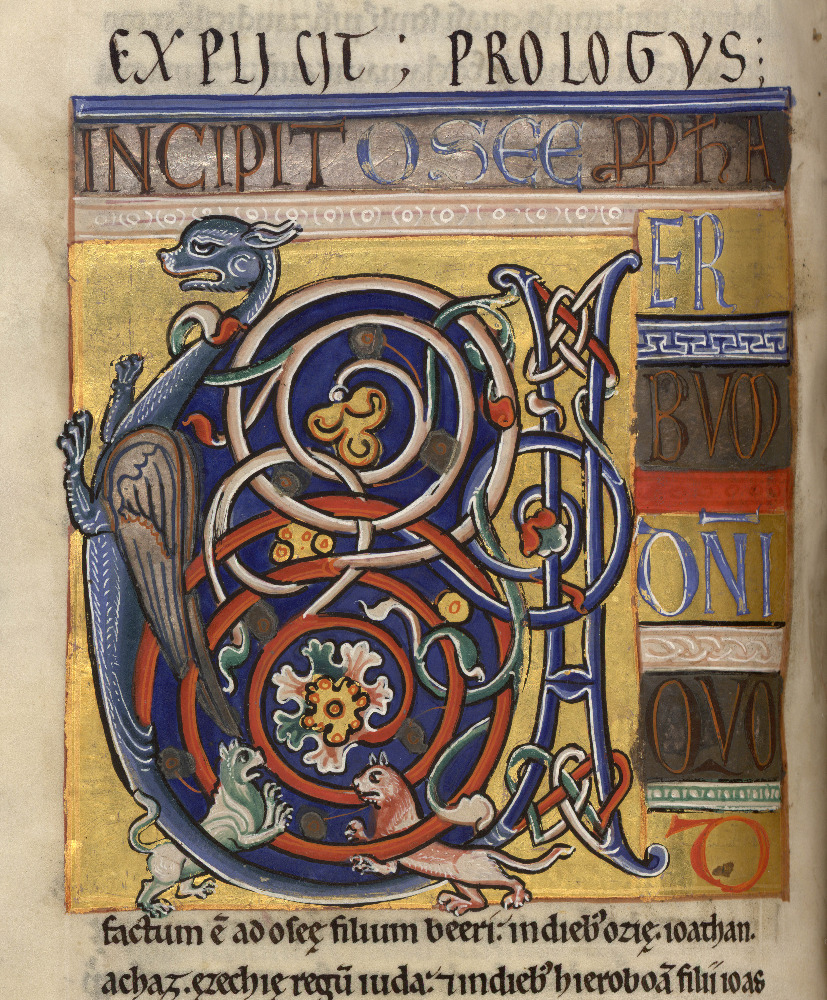 EXPLICIT; PROLOGVS;
INCIPIT OSEE PPHA
V
ER
BVM
DÑI
QVO
D
factum ē ad oseę filium beeri. in dieb' ozię. ioathan.
achaz. ezechię regū iuda: ⁊ in dieb' hieroboā filii ioas